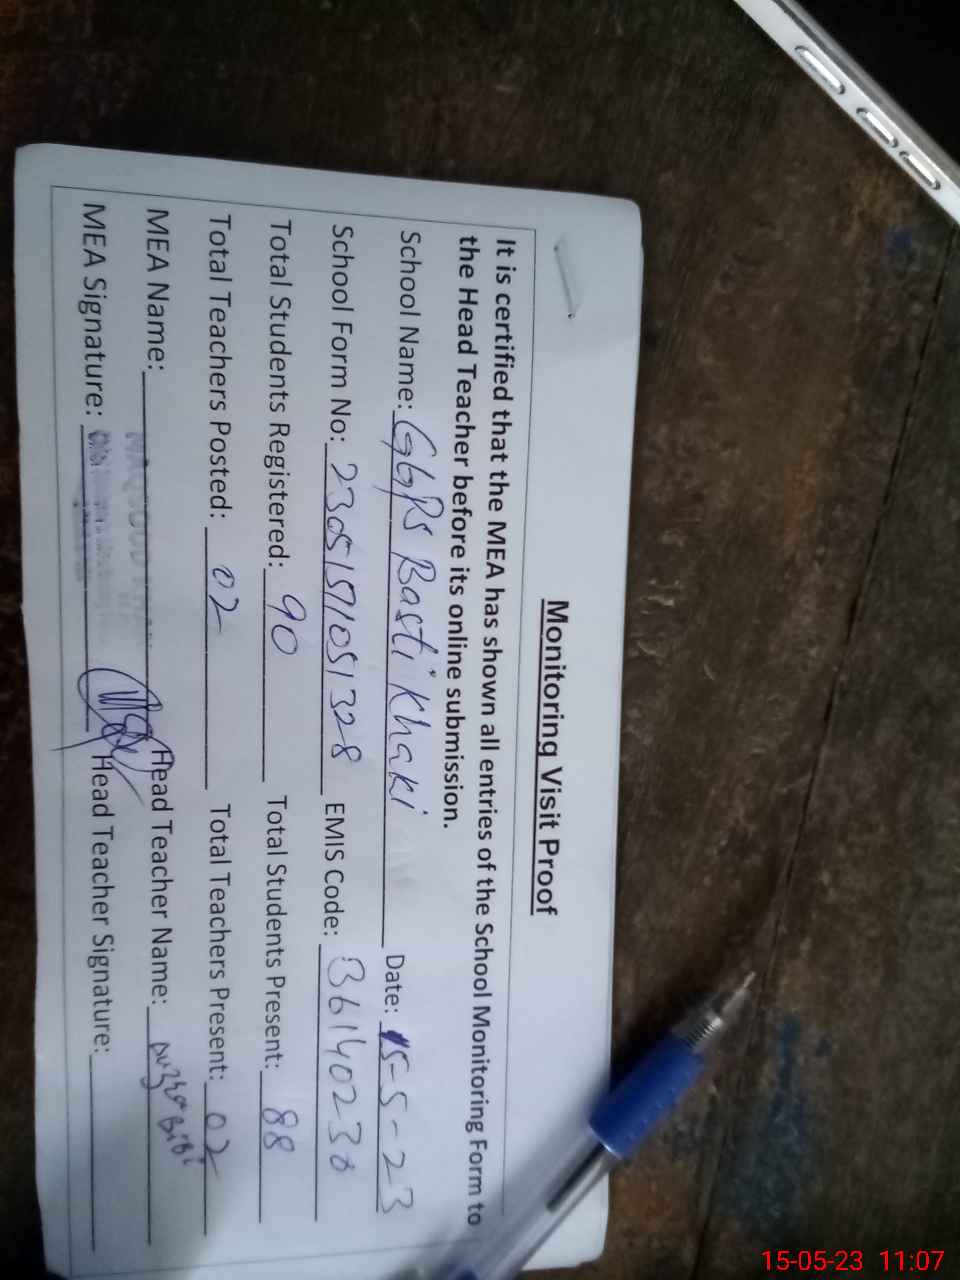 Monitoring Visit Proof
It is certified that the MEA has shown all entries of the School Monitoring Form to
the Head Teacher before its online submission.
School Name: GGPS Basti Khaki Date: 15-5-23
School Form No: EMIS Code:
Total Students Registered: 90 Total Students Present: 88
Total Teachers Posted: 02 Total Teachers Present: 02
MEA Name: Head Teacher Name: Bibi
MEA Signature: Head Teacher Signature:
15-05-23 11:07